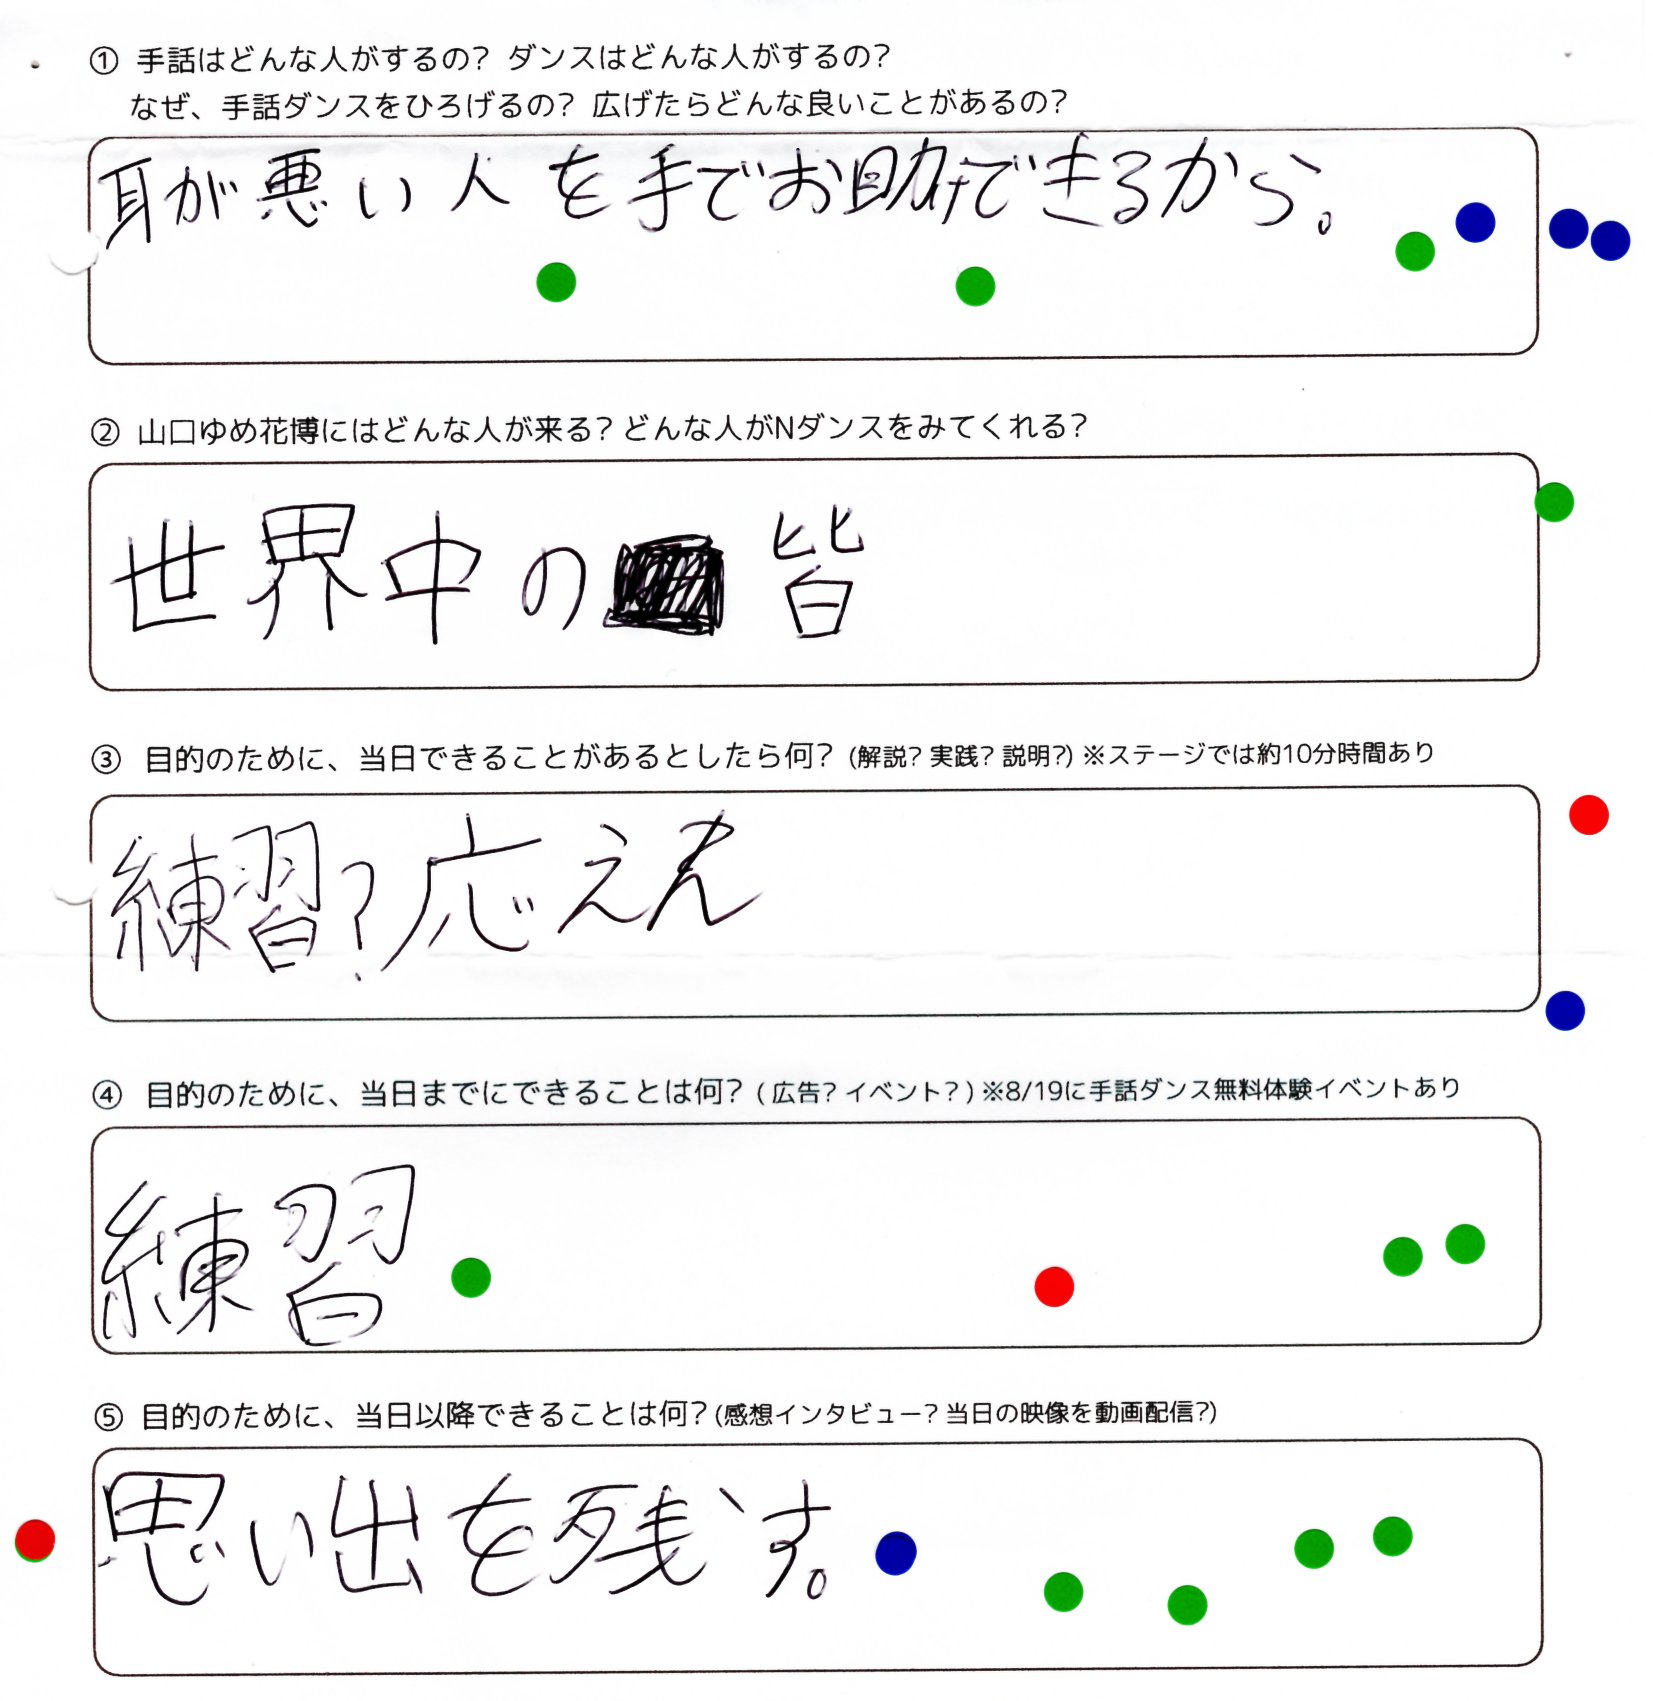 ① 手話はどんな人がするの? ダンスはどんな人がするの?
なぜ、手話ダンスをひろげるの? 広げたらどんな良いことがあるの?
耳が悪い人を手でお助けできるから。
② 山口ゆめ花博にはどんな人が来る? どんな人がNダンスをみてくれる?
世界中の皆
③ 目的のために、当日できることがあるとしたら何? (解説? 実践? 説明?) ※ステージでは約10分時間あり
練習?応えん
④ 目的のために、当日までにできることは何? ( 広告? イベント? ) ※8/19に手話ダンス無料体験イベントあり
練習
⑤ 目的のために、当日以降できることは何? (感想インタビュー? 当日の映像を動画配信?)
思い出を残す。